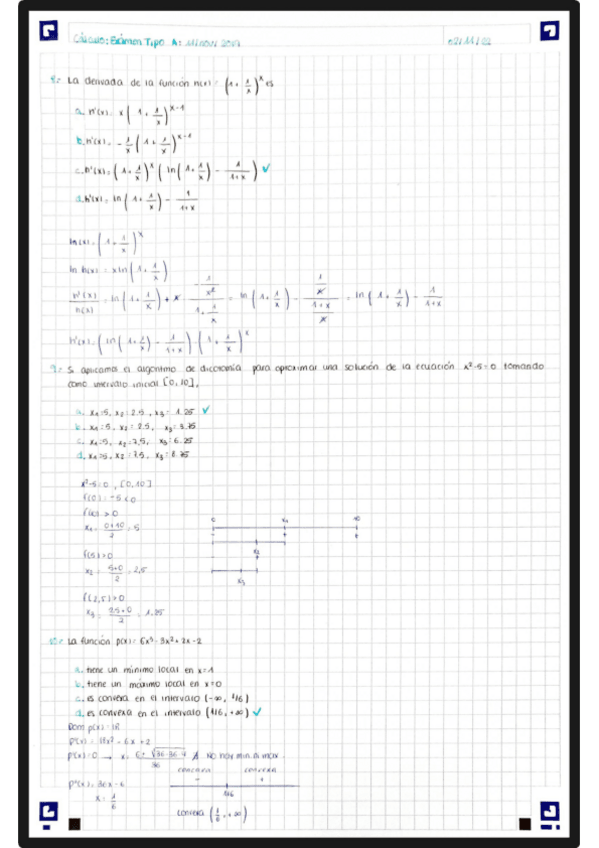 Cálculo: Exámen Tipo A: 11 nov 2019
02/11/22
8.- La derivada de la función h(x) = (1 + 1/x)^x es
a. h'(x) = x (1 + 1/x)^x-1
b. h'(x) = - 1/x (1 + 1/x)^x-1
c. h'(x) = (1 + 1/x)^x (ln (1 + 1/x) - 1/1+x) ✓
d. h'(x) = ln (1 + 1/x) - 1/1+x
(1 + 1/x)^x
ln h(x) = x ln (1 + 1/x)
h'(x)/h(x) = ln (1 + 1/x) + x · (-1/x²)/(1 + 1/x) = ln (1 + 1/x) - (1/x)/((1+x)/x) = ln (1 + 1/x) - 1/1+x
h'(x) = (ln (1 + 1/x) - 1/1+x) · (1 + 1/x)^x
9.- Si aplicamos el algoritmo de dicotomía para aproximar una solución de la ecuación x²-5=0 tomando
como intervalo inicial [0,10],
a. x1=5, x2=2.5, x3=1.25 ✓
b. x1=5, x2=2.5, x3=3.75
c. x1=5, x2=7.5, x3=6.25
d. x1=5, x2=7.5, x3=8.75
x²-5=0, [0,10]
f(0) = -5 < 0
f(10) > 0
x1 = 0+10/2 = 5
0 x1 10
- + +
f(5) > 0
x2
x2 = 5+0/2 = 2,5
x3
f(2,5) > 0
x3 = 2.5+0/2 = 1.25
10.- La función p(x) = 6x³-3x²+2x-2
a. tiene un mínimo local en x=1
b. tiene un máximo local en x=0
c. es convexa en el intervalo (-∞, 1/6)
d. es convexa en el intervalo (1/6, +∞) ✓
Dom p(x) = ℝ
p'(x) = 18x² - 6x + 2
p'(x) = 0 → x = 6± √36-36·4 /36 ∄ No hay min ni max
concava convexa
p''(x) = 36x - 6
- +
x = 1/6
1/6
convexa (1/6, +∞)